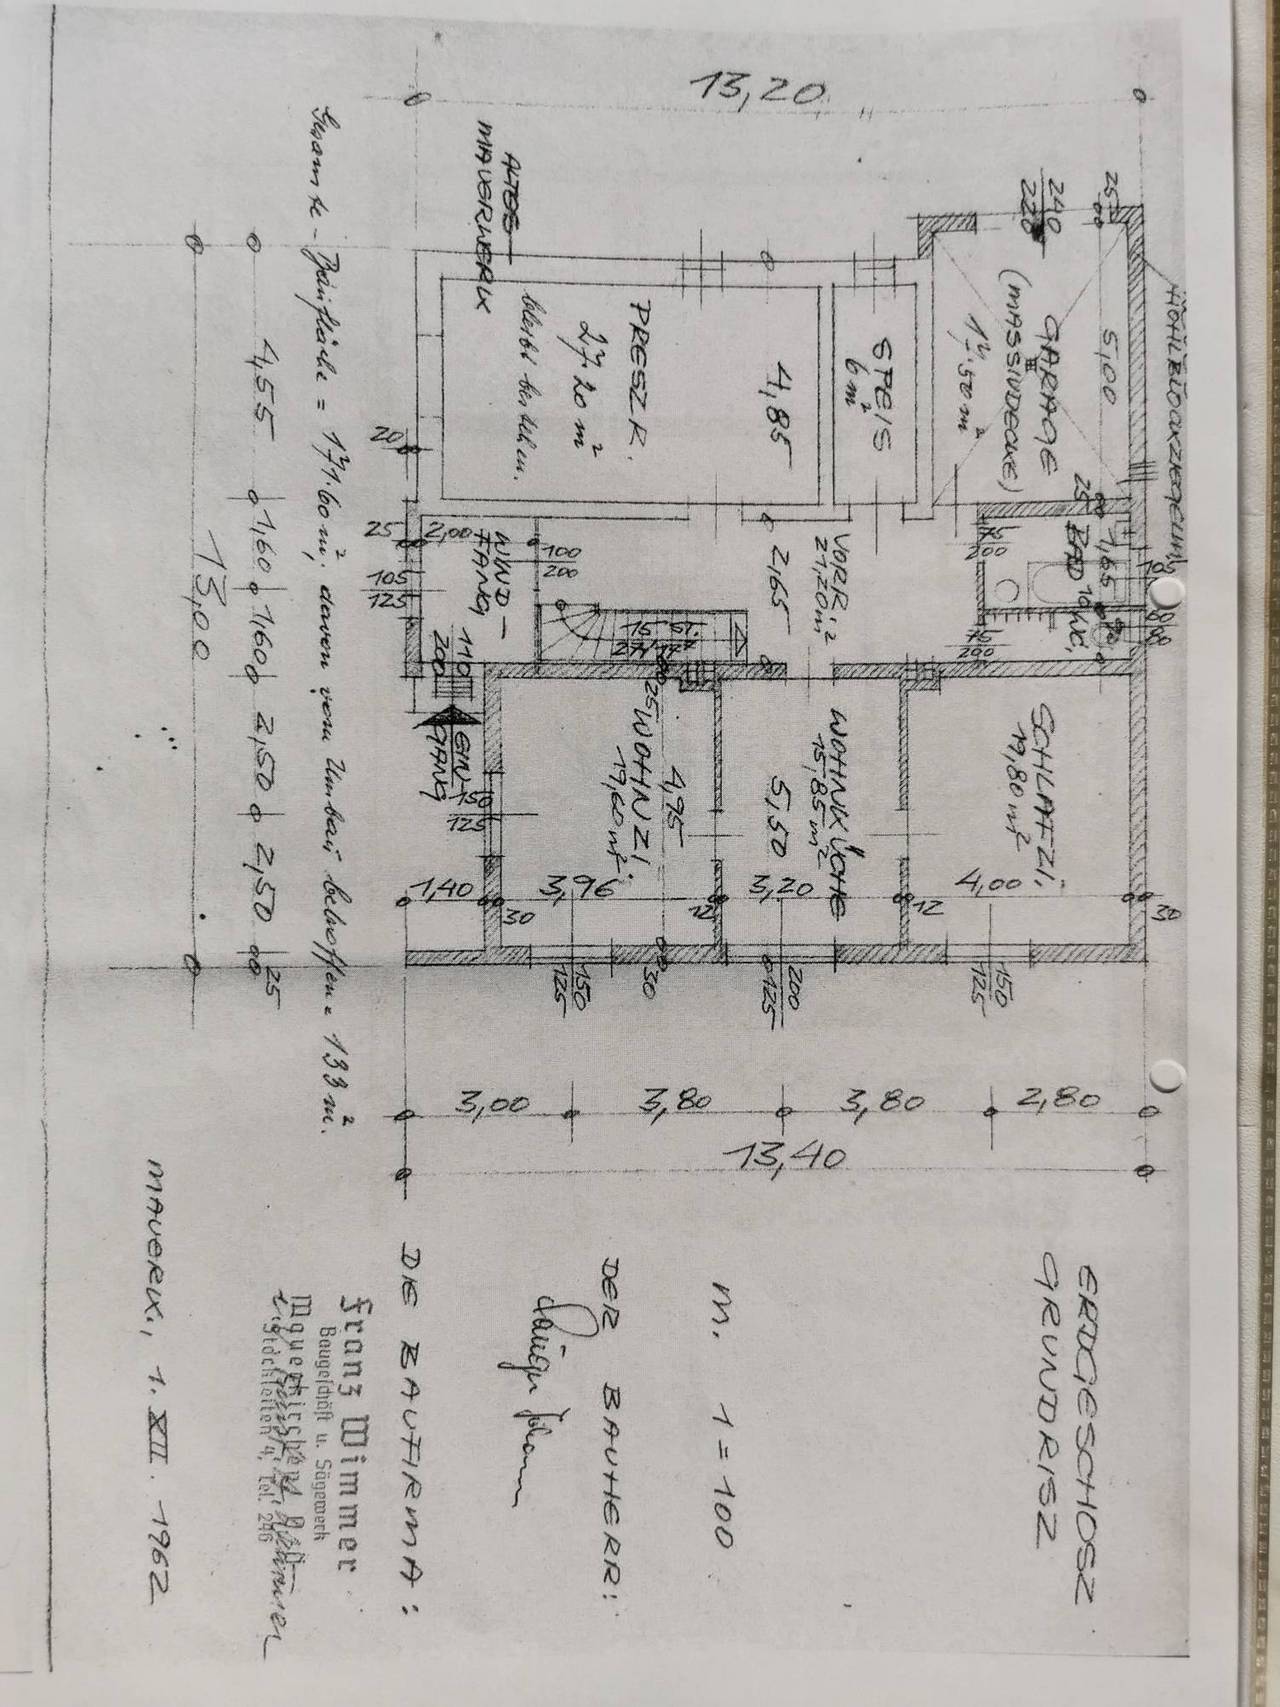 ERDGESCHOSZ
GRUNDRISZ
M. 1=100
DER BAUHERR:
DIE BAUFIRMA:
Franz Wimmer
Baugeschäft u. Sägewerk
Tel. 246
MAUERK., 1. XII. 1962
HOHLBLOCKZIEGELM.
25
240
220
5,00
GARAGE
(MASSIVDECKE)
17.50 m²
SPEIS
6 m²
4,85
PRESZR.
27.20 m²
bleibt bestehen.
ALTES
MAUERWERK
13,20
25
1,65
BAD
WC.
10
75
200
75
200
VORR.
21,20 m²
2,65
100
200
WIND-
FANG
2,00
20
25
105
125
15 ST.
110
200
EIN
GANG
SCHLAFZI.
19,80 m²
WOHNKÜCHE
15,85 m²
5,50
WOHNZI.
19,60 m²
4,95
25
150
125
1,40
30
3,96
12
3,20
12
4,00
30
150
125
30
200
125
150
125
3,00
3,80
3,80
2,80
13,40
Gesamte - Baufläche = 171.60 m², davon vom Umbau betroffen = 133 m².
4,55
1,60
1,60
2,50
2,50
25
13,00